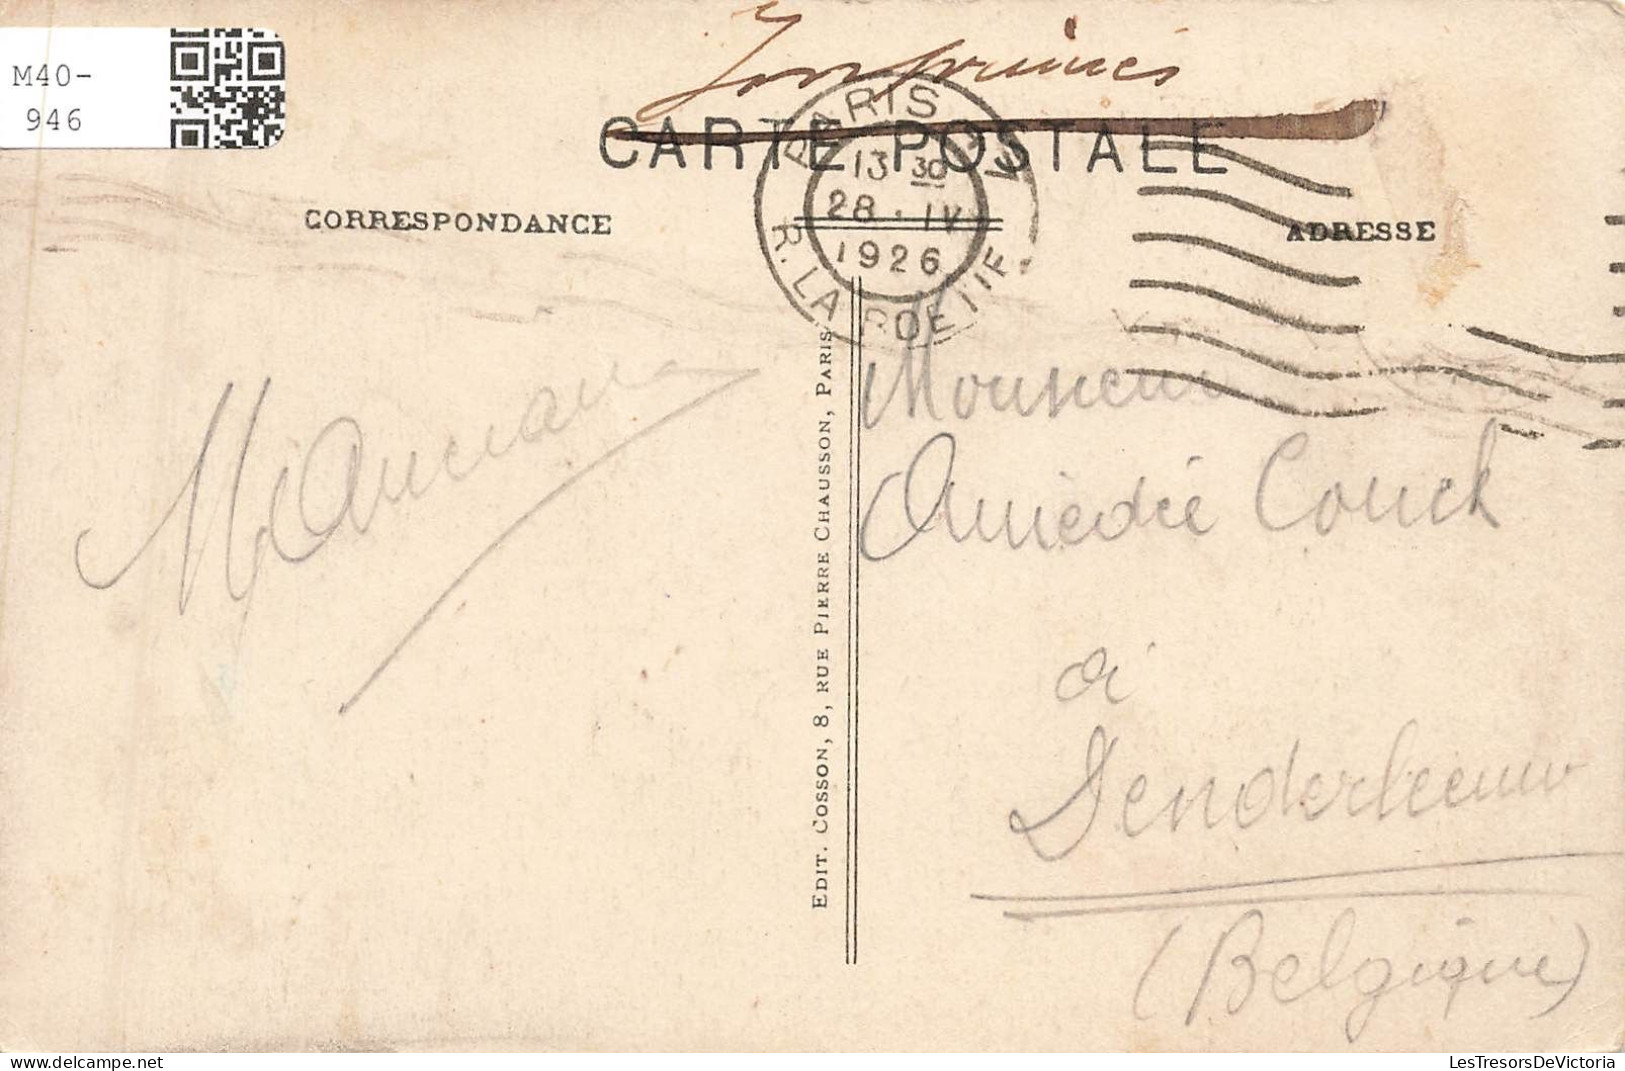 M40-
946
Imprimés
CARTE POSTALE
PARIS VIII
13 30
28 · IV
1926
R. LA BOETIE
CORRESPONDANCE
ADRESSE
Monsieur
Amédée Couck
à
Denderleeuw
(Belgique)
EDIT. COSSON, 8, RUE PIERRE CHAUSSON, PARIS
LesTresorsDeVictoria
www.delcampe.net